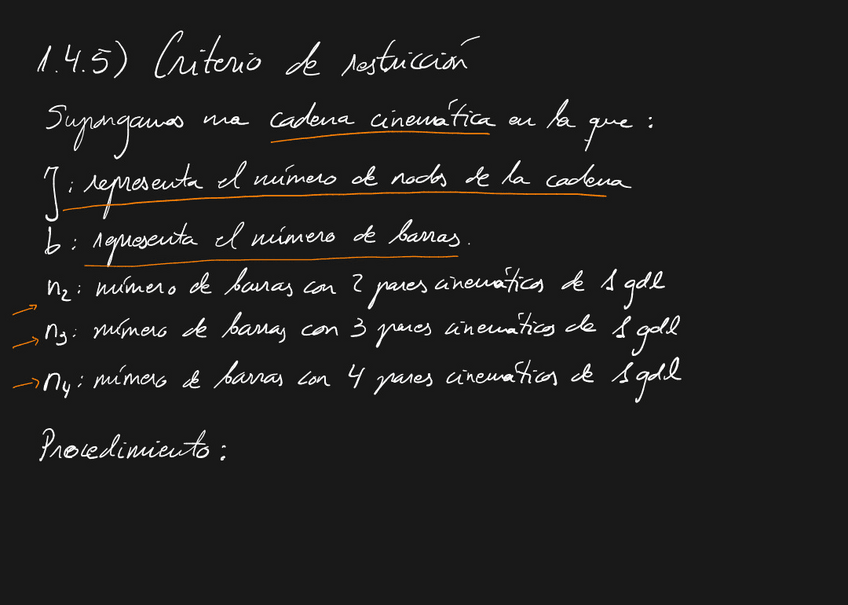 1.4.5) Criterio de restricción
Supongamos una cadena cinemática en la que :
J : representa el número de nodos de la cadena
b : representa el número de barras.
n2 : número de barras con 2 pares cinemáticos de 1 gdl
n3 : número de barras con 3 pares cinemáticos de 1 gdl
n4 : número de barras con 4 pares cinemáticos de 1 gdl
Procedimiento :